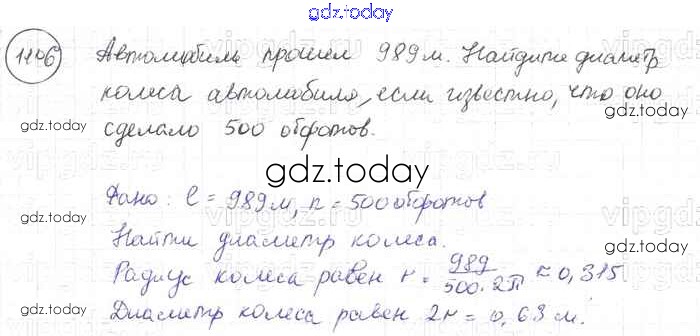 gdz.today
1106 Автомобиль прошел 989 м. Найдите диаметр
колеса автомобиля, если известно, что оно
gdz.today
сделало 500 оборотов.
gdz.today
gdz.today
Дано: l = 989 м, n = 500 оборотов
vipgdz
Найти диаметр колеса.
gdz.today
gdz.today
Радиус колеса равен r = 989 / 500·2π ≈ 0,315
Диаметр колеса равен 2r = 0,63 м.